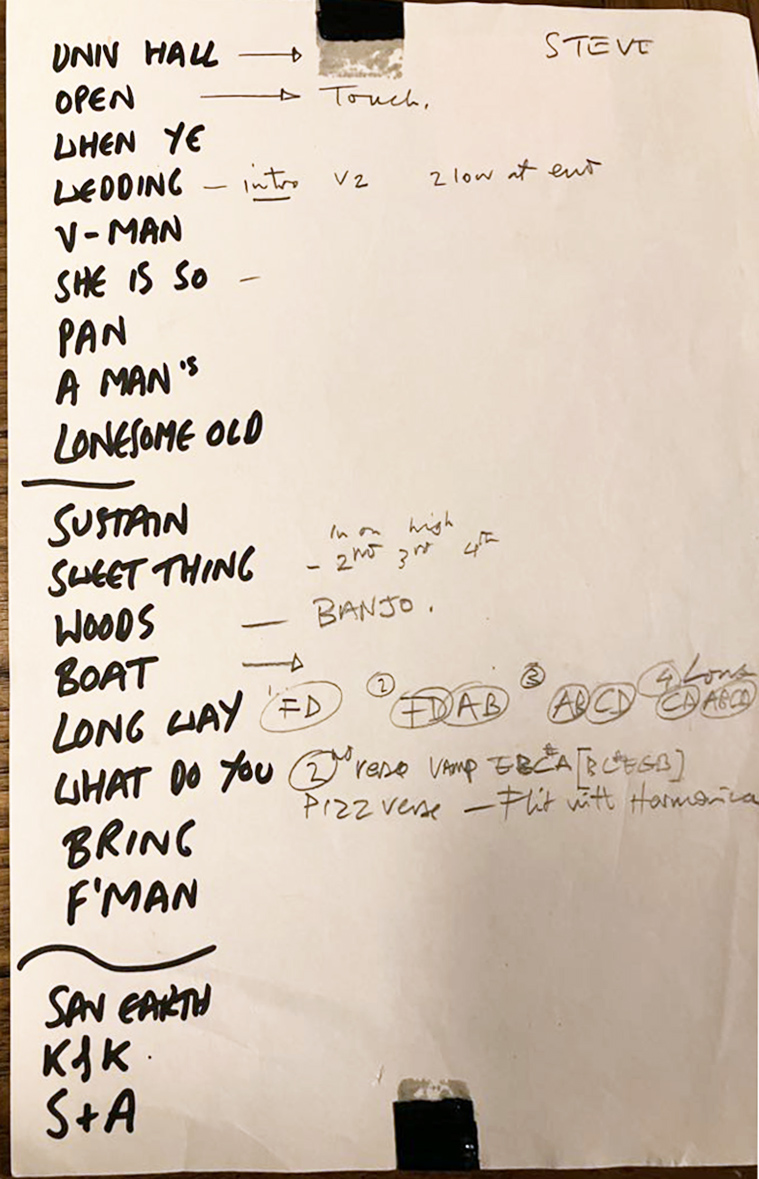 UNIV HALL → STEVE
OPEN → Touch.
WHEN YE
WEDDING - intro V2 2 low at end
V-MAN
SHE IS SO -
PAN
A MAN'S
LONESOME OLD
SUSTAIN
In on high
SWEET THING - 2nd 3rd 4th
WOODS — BANJO.
BOAT →
LONG WAY 1 FD 2 FD AB 3 AB CD 4 Long CD ABCD
WHAT DO YOU 2nd verse VAMP EBC#A [BC#EGB]
PIZZ verse - Flit with Harmonica
BRING
F'MAN
SAV EARTH
K&K.
S+A